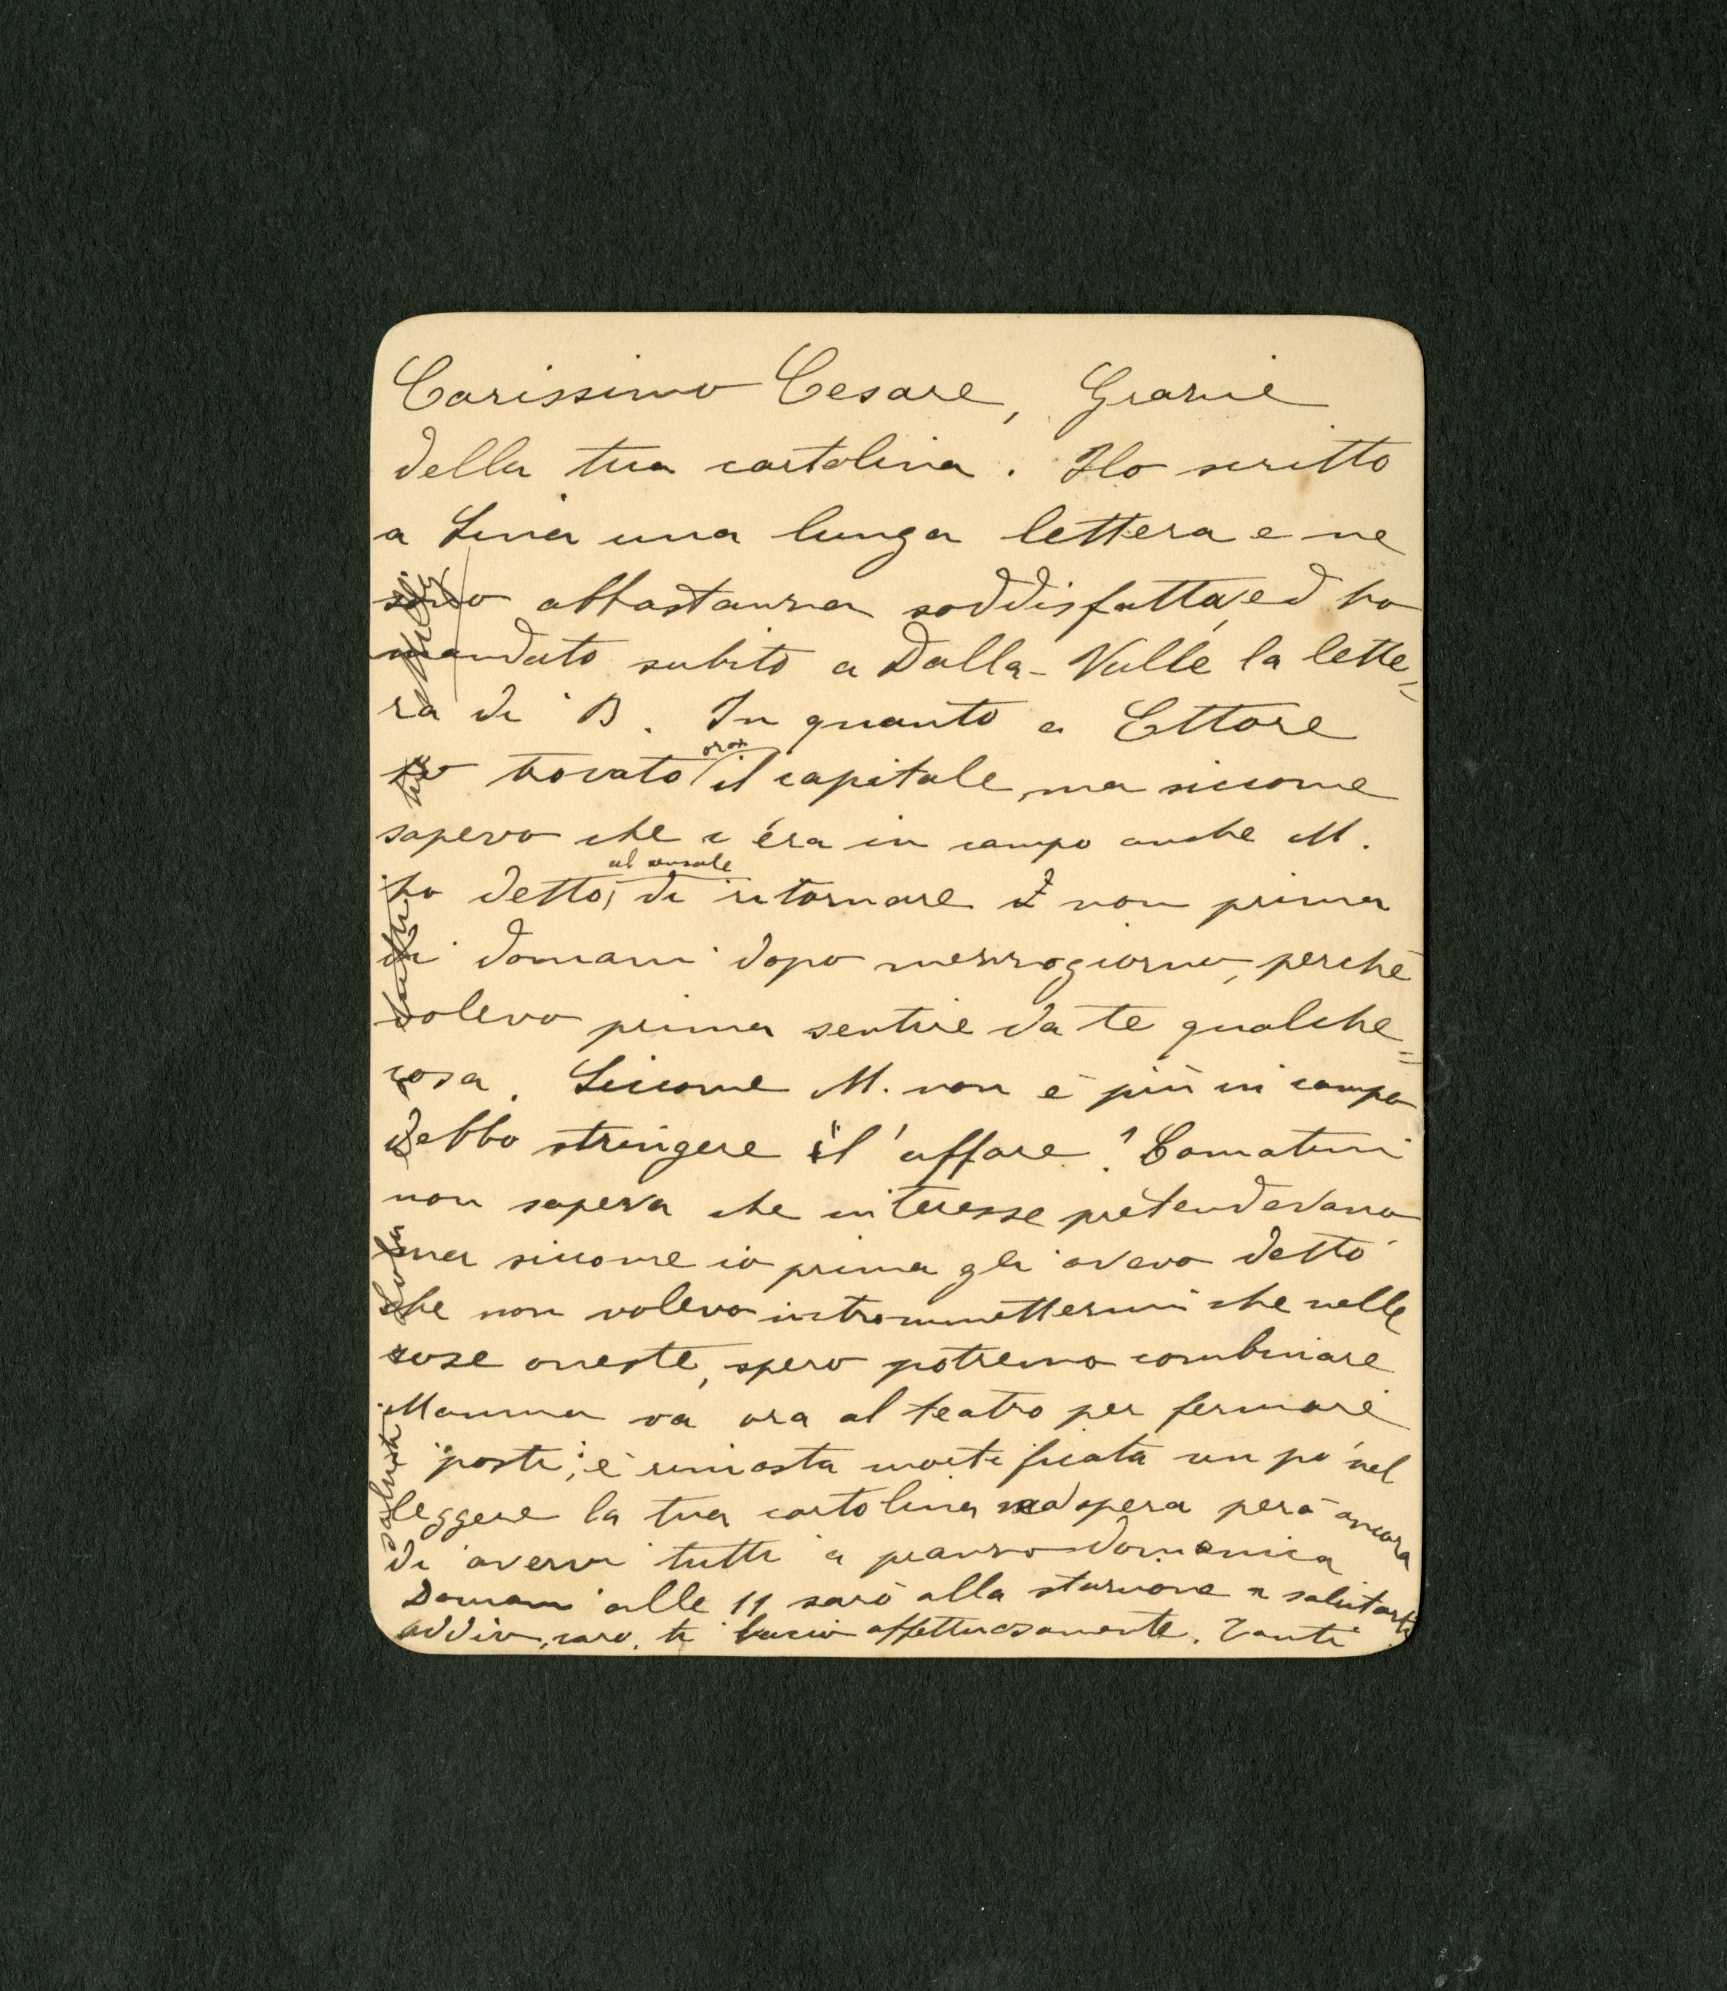 Carissimo Cesare, Grazie
della tua cartolina. Ho scritto
a Lina una lunga lettera e ne
sono abbastanza soddisfatta, ed ho
mandato subito a Dalla-Valle la lette=
ra di B. In quanto a Ettore
ho trovato ora il capitale, ma siccome
sapevo che c'era in campo anche M.
ho detto, al sensale di ritornare non prima
di domani dopo mezzogiorno, perchè
volevo prima sentire da te qualche=
cosa. Siccome M. non è più in campo
debbo stringere l'affare? Comatini
non sapeva che interesse pretendevano
ma siccome io prima gli avevo detto
che non volevo intrommettermi che nelle
cose oneste, spero potremo combinare
Mamma va ora al teatro per fermare
i posti; è rimasta mortificata un po' nel
leggere la tua cartolina ma spera però ancora
di avervi tutti a pranzo domenica
Domani alle 11 sarò alla stazione a salutarti
addio, caro, ti bacio affettuosamente. Tanti
saluti dalla tua